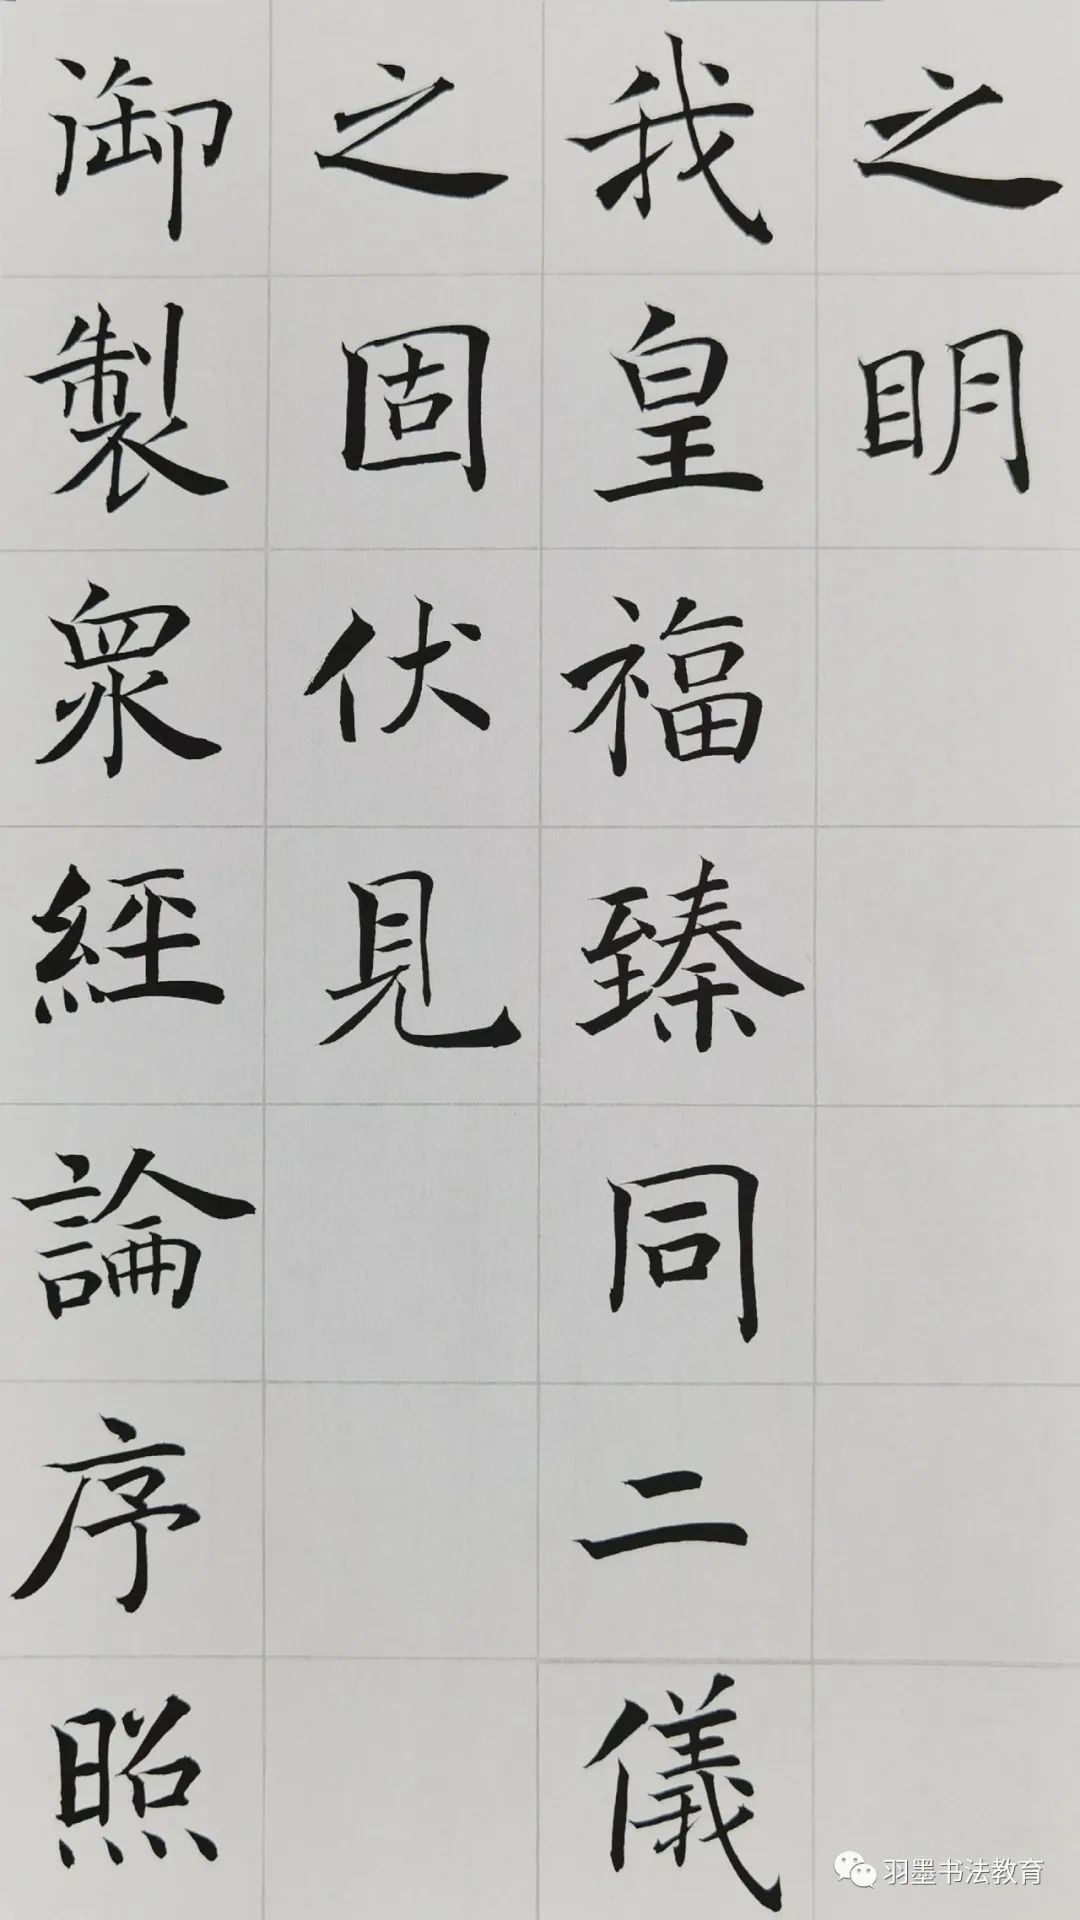 之明
我皇福臻同二儀
之固伏見
御製眾經論序照
羽墨书法教育